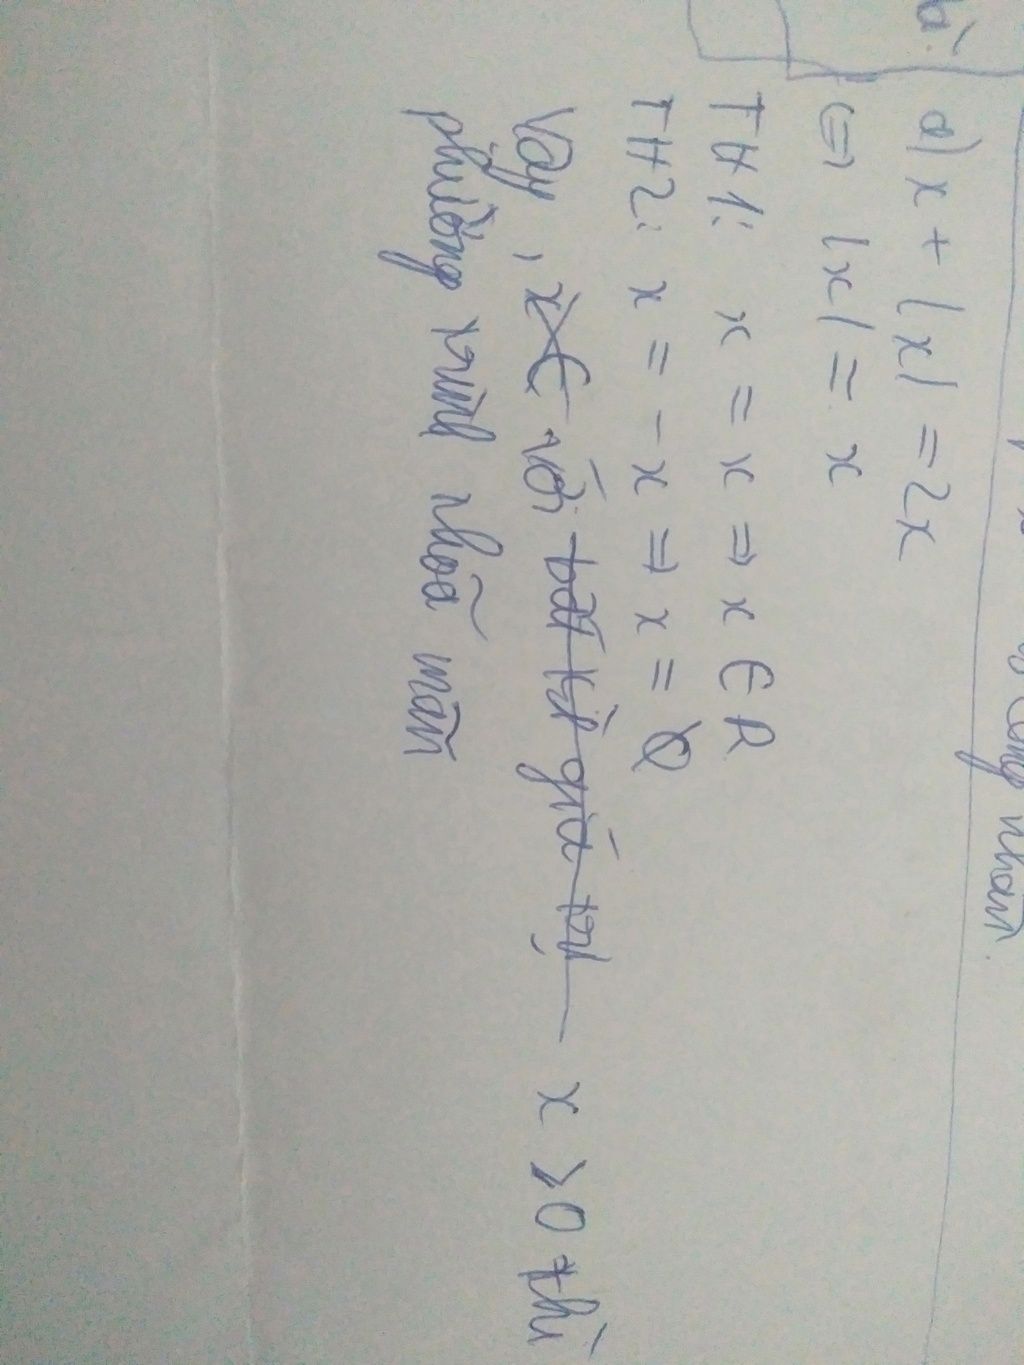 bài
công nhân.
d) x + |x| = 2x
<=> |x| = x
TH1: x = x => x ∈ R
TH2: x = -x => x = 0
Vậy, x∈ với bất kì giá trị x > 0 thì
phương trình thoã mãn